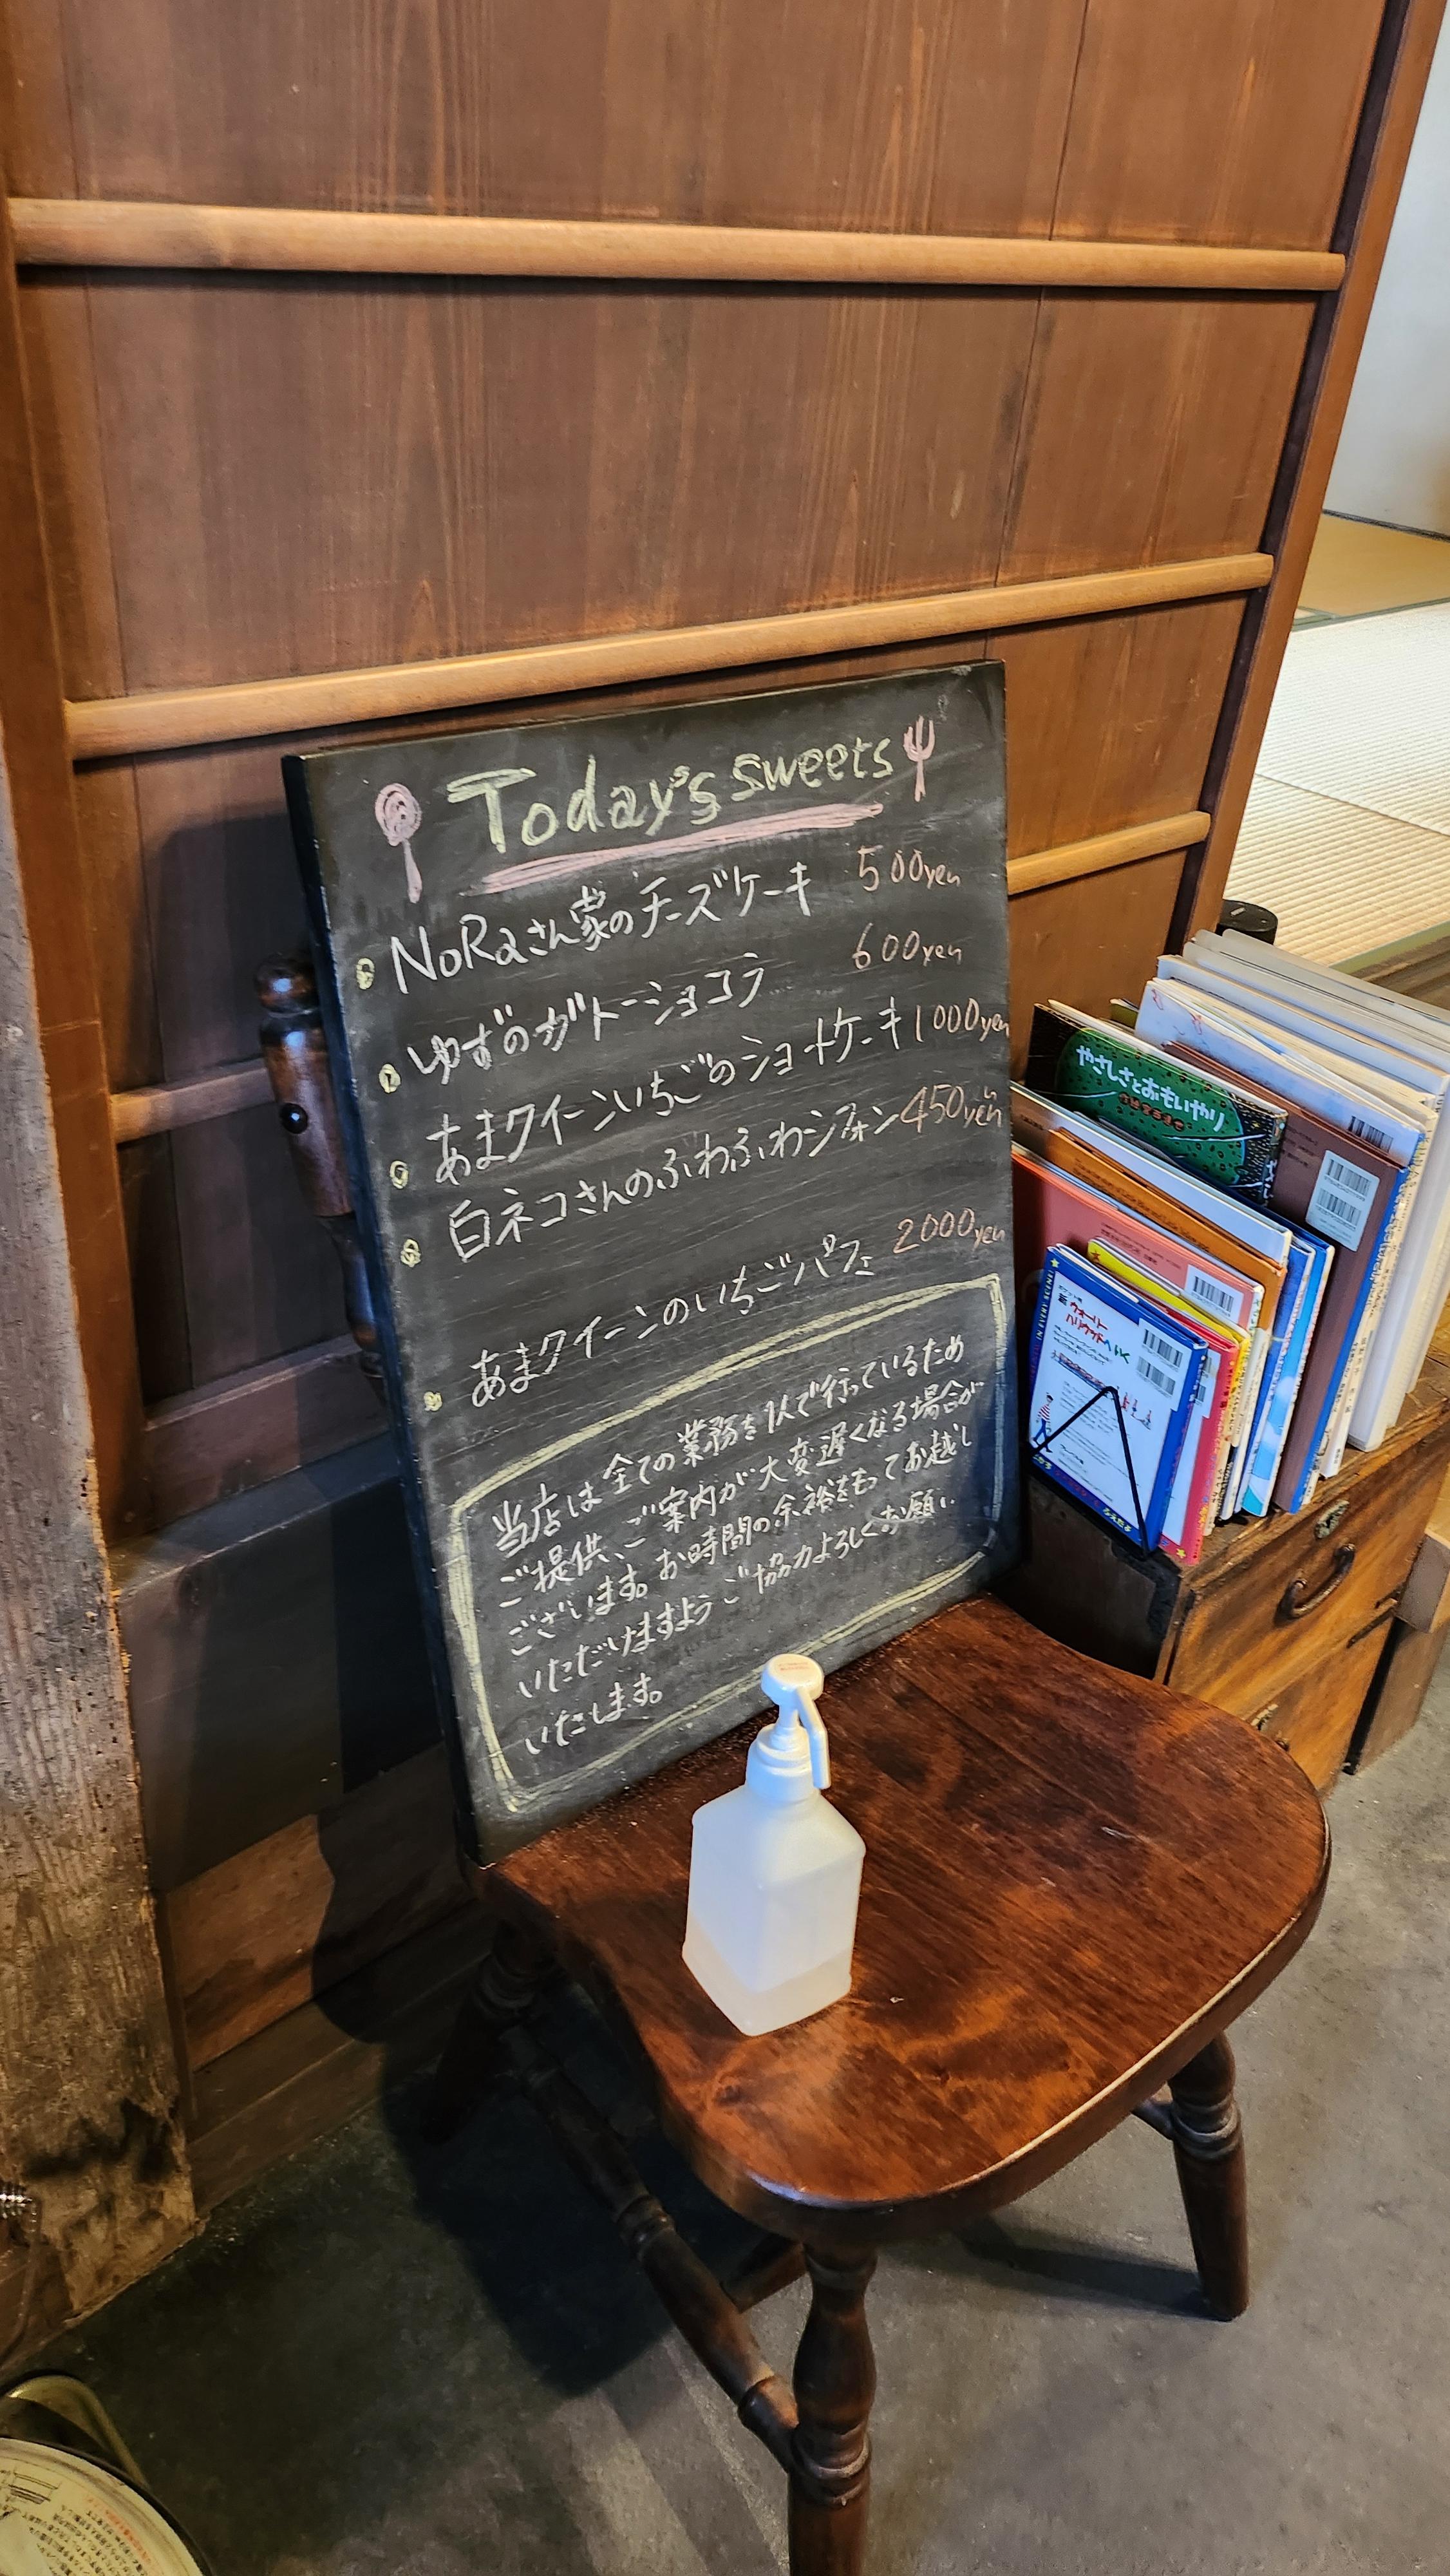 Today's sweets
NoRaさん家のチーズケーキ 500yen
ゆずのガトーショコラ 600yen
あまクイーンいちごのショートケーキ 1000yen
白ネコさんのふわふわシフォン 450yen
あまクイーンのいちごパフェ 2000yen
当店は全ての業務を1人で行っているため
ご提供、ご案内が大変遅くなる場合が
ございます。お時間の余裕をもってお越し
いただけますようご協力よろしくお願い
いたします。
やさしさとおもいやり
新ウォーリー
ハリウッドへいく
IN EVERY SCENE!